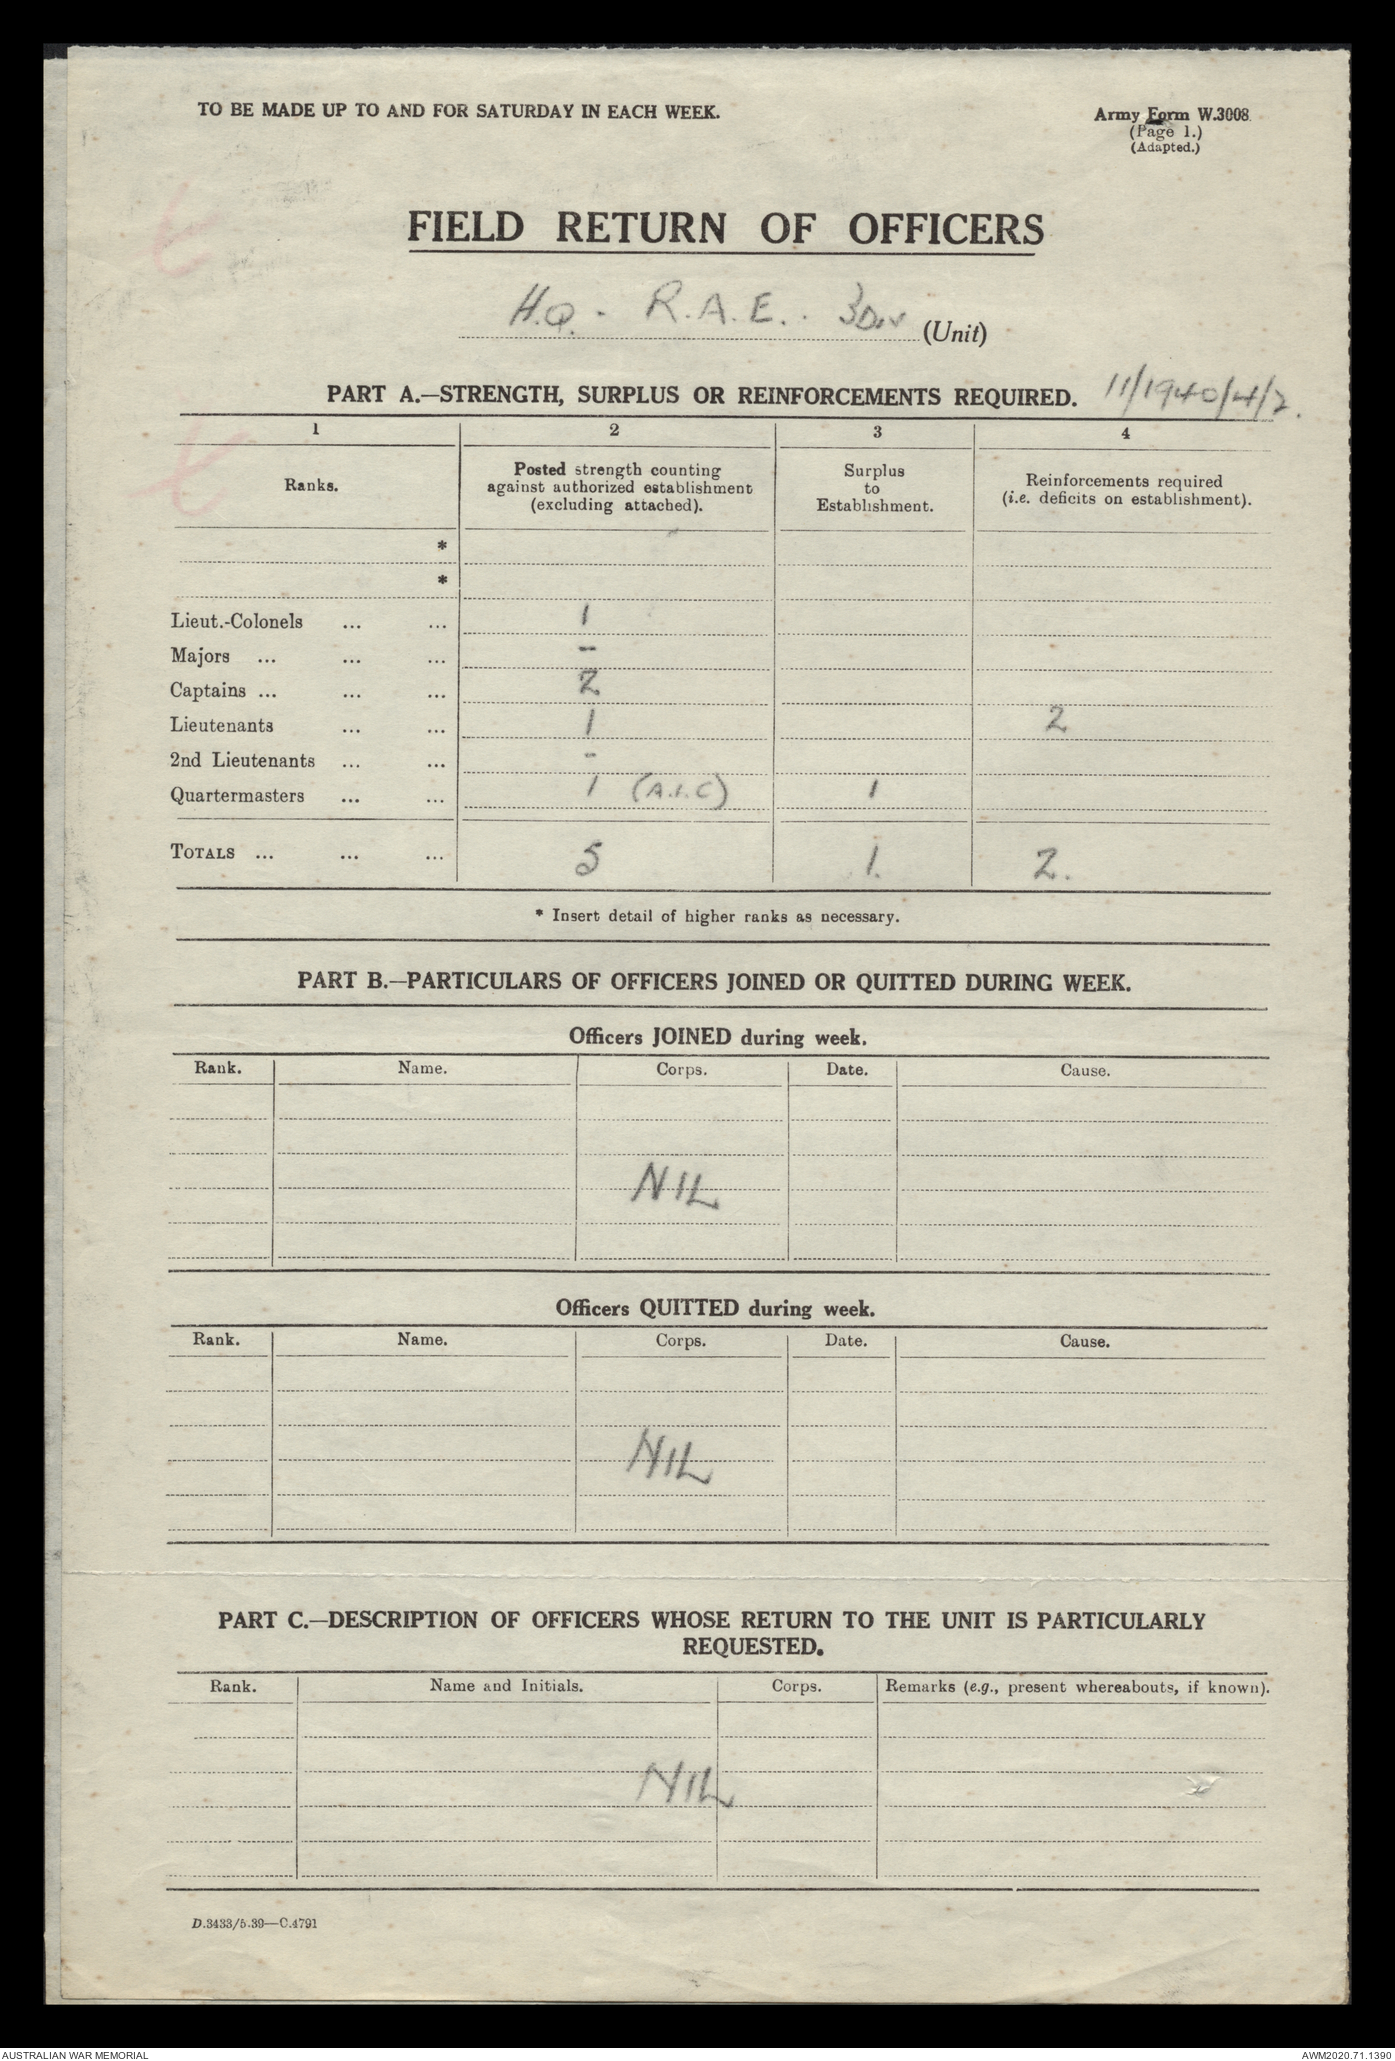 TO BE MADE UP TO AND FOR SATURDAY IN EACH WEEK.
Army Form W.3008
(Page 1.)
(Adapted.)
FIELD RETURN OF OFFICERS
H.Q. - R.A.E. . 3 Div (Unit)
PART A.—STRENGTH, SURPLUS OR REINFORCEMENTS REQUIRED. 11/1940/4/2.
1 2 3 4
Ranks. Posted strength counting against authorized establishment (excluding attached). Surplus to Establishment. Reinforcements required (i.e. deficits on establishment).
*
*
Lieut.-Colonels ... ... 1
Majors ... ... ... -
Captains ... ... ... 2
Lieutenants ... ... 1 2
2nd Lieutenants ... ... -
Quartermasters ... ... 1 (A.I.C) 1
TOTALS ... ... ... 5 1. 2.
* Insert detail of higher ranks as necessary.
PART B.—PARTICULARS OF OFFICERS JOINED OR QUITTED DURING WEEK.
Officers JOINED during week.
Rank. Name. Corps. Date. Cause.
NIL
Officers QUITTED during week.
Rank. Name. Corps. Date. Cause.
NIL
PART C.—DESCRIPTION OF OFFICERS WHOSE RETURN TO THE UNIT IS PARTICULARLY
REQUESTED.
Rank. Name and Initials. Corps. Remarks (e.g., present whereabouts, if known).
NIL
D.3433/5.39—C.4791
AUSTRALIAN WAR MEMORIAL AWM2020.71.1390